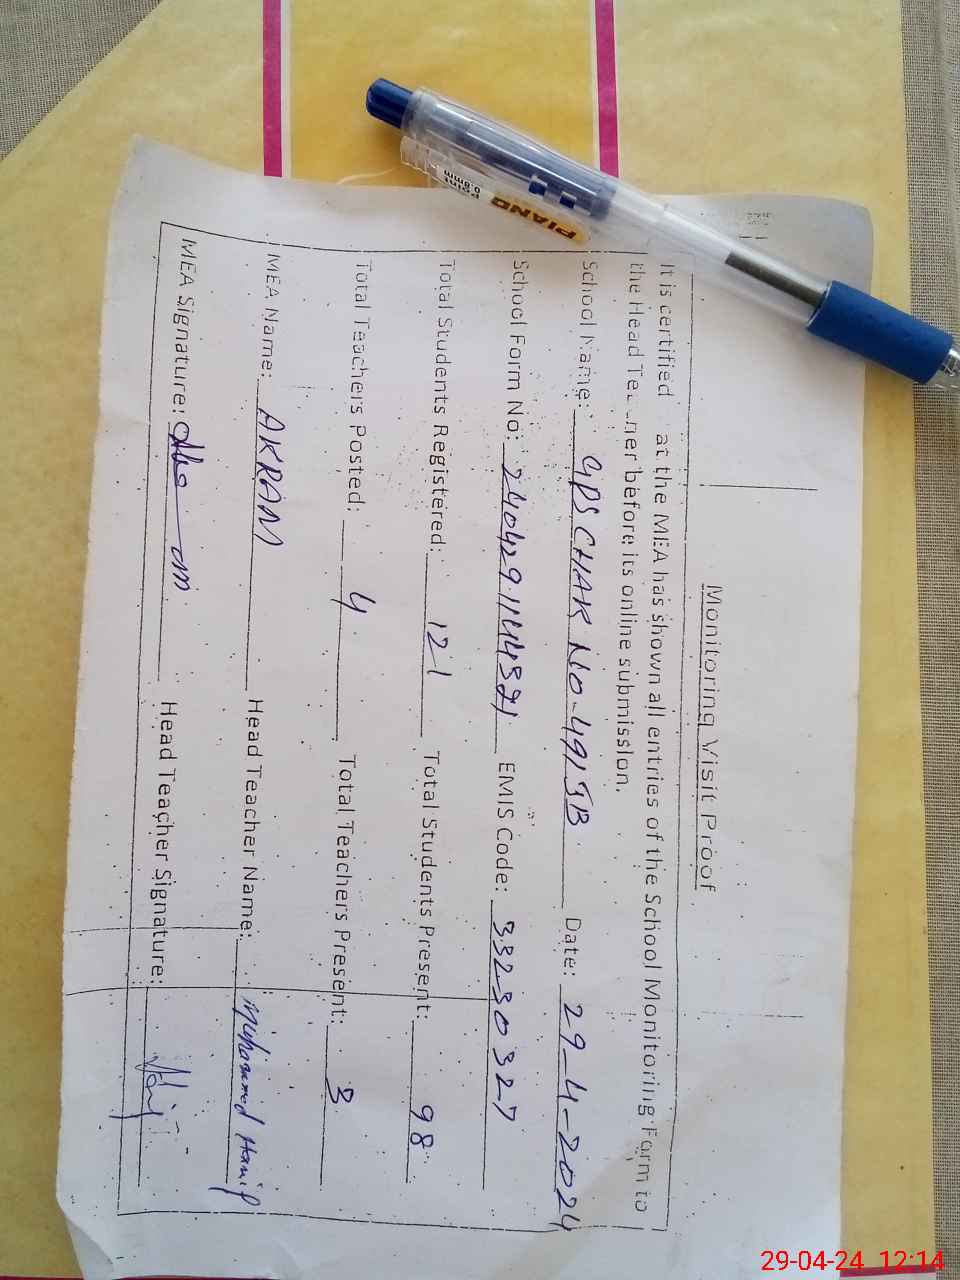 Monitoring Visit Proof
It is certified at the MEA has shown all entries of the School Monitoring Form to
the Head Te ner before its online submission.
School Name: GPS CHAK NO-49/3B Date: 29-4-2024
School Form No: EMIS Code: 33230327
Total Students Registered: 121 Total Students Present: 98
Total Teachers Posted: 4 Total Teachers Present: 3
MEA Name: AKRAM Head Teacher Name: Muhammad Hanif
MEA Signature: Head Teacher Signature:
PIANO
Point
0.8mm
29-04-24 12:14